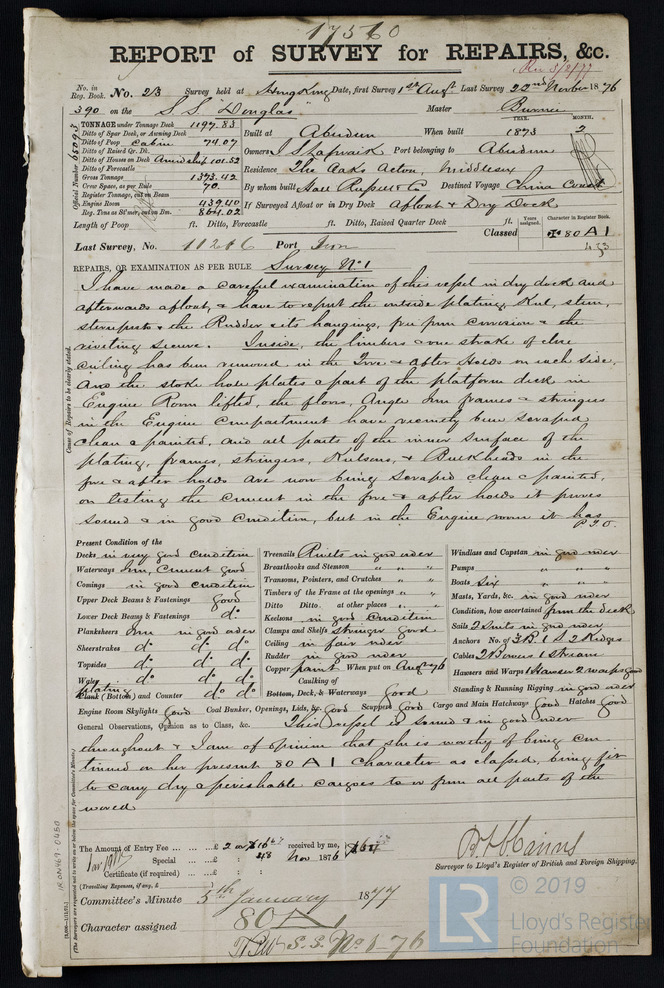 17560
REPORT of SURVEY for REPAIRS, &c.
Rec 5/2/77
No. in Reg. Book. No. 23 Survey held at Hong Kong Date, first Survey 1st Augt Last Survey 22nd Novber 1876
390 on the S.S. "Douglas" Master Burnie
TONNAGE under Tonnage Deck 1197.83
Ditto of Spar Deck, or Awning Deck
Ditto of Poop Cabin 74.07
Ditto of Raised Qr. Dk.
Ditto of Houses on Deck Amidship 101.52
Ditto of Forecastle
Gross Tonnage 1373.42
Crew Space, as per Rule 70.
Register Tonnage, cut on Beam
Engine Room 439.40
Reg. Tons as St'mer, cut on Bm. 864.02
Official Number 65095
Built at Aberdeen When built YEAR. 1873 MONTH. 2
Owners J S Lapraik Port belonging to Aberdeen
Residence The Oaks Acton, Middlesex
By whom built Hall Russell & Co Destined Voyage China Coast
If Surveyed Afloat or in Dry Dock Afloat & Dry Dock
Length of Poop ft. Ditto, Forecastle ft. Ditto, Raised Quarter Deck ft.
Years assigned. Character in Register Book.
Classed 80 A 1
4,73
Last Survey, No. 11246 Port Iron
REPAIRS, OR EXAMINATION AS PER RULE Survey No 1
I have made a careful examination of this vessel in dry dock and
afterwards afloat, & have to report the outside plating, Keel, stem,
sternposts & the Rudder & its hangings, free from corrosion & the
riveting secure. Inside, the limbers & one strake of close
ceiling has been removed in the Fore & after Holds on each side,
and the stoke hole plates & part of the platform deck in
Engine Room lifted, the floors, Angle Iron frames & stringers
in the Engine compartment have recently been scraped
clean & painted, and all parts of the inner surface of the
plating, frames, stringers, Keelsons, & Bulkheads in the
fore & after holds are now being scraped clean & painted,
on testing the cement in the fore & after holds it proves
sound & in good condition, but in the Engine room it has
P.T.O.
Cause of Repairs to be clearly stated.
Present Condition of the
Decks in very good condition
Waterways Iron, Cement Good
Comings in good condition
Upper Deck Beams & Fastenings Good
Lower Deck Beams & Fastenings do
Planksheers Iron in good order
Sheerstrakes do do do
Topsides do do do
Wales do do do
plating
Plank (Bottom) and Counter do do
Treenails Rivets in good order
Breasthooks and Stemson " " "
Transoms, Pointers, and Crutches " " "
Timbers of the Frame at the openings " "
Ditto Ditto at other places " "
Keelsons in good condition
Clamps and Shelfs Stringer good
Ceiling in fair order
Rudder in good order
Copper paint When put on Augt 76
Caulking of
Bottom, Deck, & Waterways Good
Windlass and Capstan in good order
Pumps " " "
Boats Six " " "
Masts, Yards, &c. in good order
Condition, how ascertained from the deck
Sails 2 Suits in good order
Anchors No. of 3 B 1 S 2 Kedges
Cables 2 Bowers 1 Stream
Hawsers and Warps 1 Hawser 2 warps good
Standing & Running Rigging in good order
Engine Room Skylights good Coal Bunker, Openings, Lids, &c. Good Scuppers Good Cargo and Main Hatchways Good Hatches Good
General Observations, Opinion as to Class, &c. This vessel is sound & in good order
throughout & I am of opinion that she is worthy of being con
tinued in her present 80 A 1 Character as classed, being fit
to carry dry & perishable cargoes to & from all parts of the
world
The Amount of Entry Fee £ 2 received by me,
Special £ 48 Nov 1876
Certificate (if required)
(Travelling Expenses, if any, £
Surveyor to Lloyd's Register of British and Foreign Shipping.
Committee's Minute 5th January 1877
Character assigned 80 A 1
S.S. No 1-76
(The Surveyors are requested not to write on or below the space for Committee's Minute.)
IRON469-0450
LR
© 2019
Lloyd's Register
Foundation